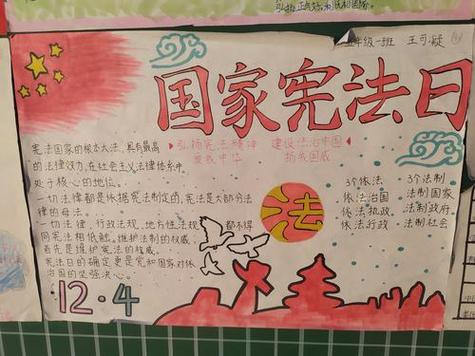 五年级一班 王可凝
国家宪法日
弘扬宪法精神 建设法治中国
爱我中华 扬我国威
宪法国家的根本大法，具有最高
的法律效力，在社会主义法律体系中
处于核心的地位。
一切法律都是依据宪法制定的，宪法是大部分法
律的母法。
一切法律，行政法规，地方性法规 都不得
同宪法相抵触。维护法制的权威，
首先是维护宪法的权威。
宪法日的确定更是党和国家对依
治国的坚强决心。
法
3个依法
依法治国
依法执政
依法行政
3个法制
法制国家
法制政府
法制社会
12·4